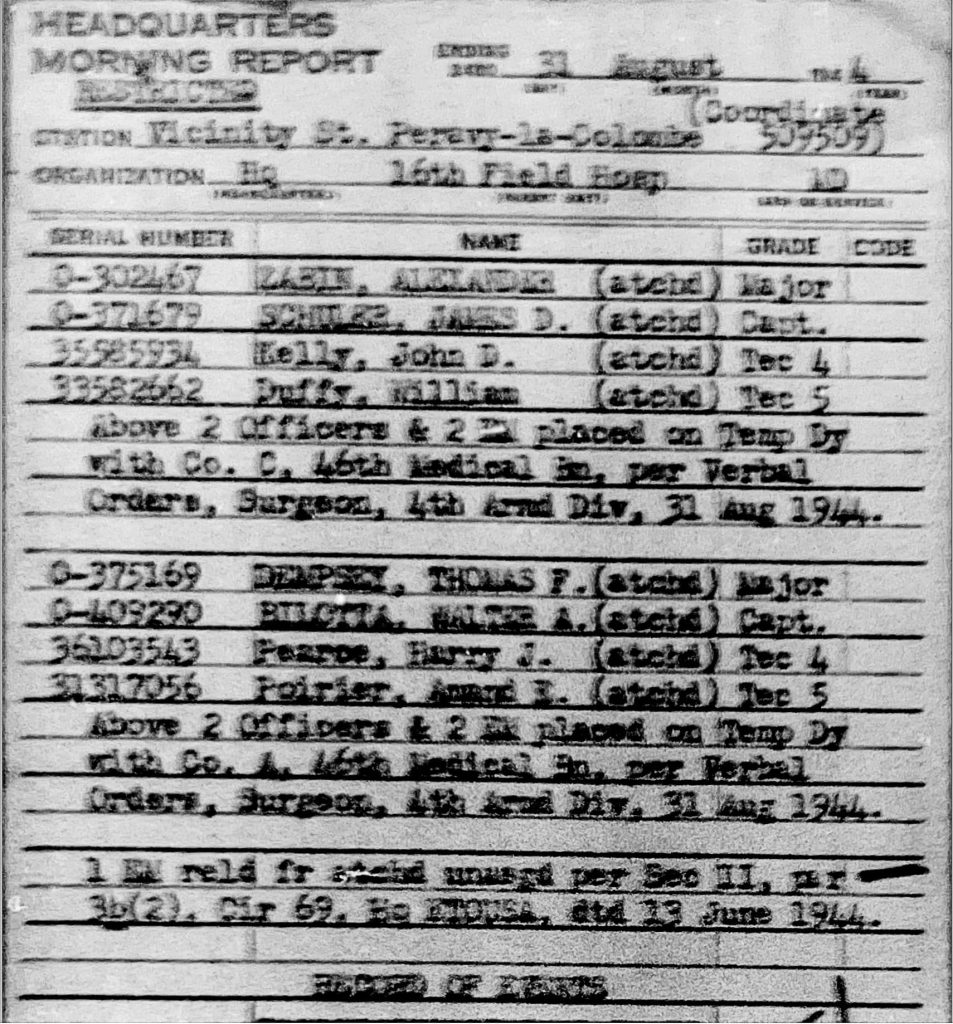 HEADQUARTERS
MORNING REPORT
ENDING
31 August 194 4
(DAY) (MONTH) (YEAR)
RESTRICTED
(Coordinate
STATION Vicinity St. Peravy-la-Colombe 509509)
ORGANIZATION Hq 16th Field Hosp MD
(PARENT UNIT) (ARM OF SERVICE)
SERIAL NUMBER NAME GRADE CODE
O-302467 ZABIN, ALEXANDER (atchd) Major
O-371679 JAMES D. (atchd) Capt.
35585934 Kelly, John D. (atchd) Tec 4
33582662 Duffy, William (atchd) Tec 5
Above 2 Officers & 2 EM placed on Temp Dy
with Co. C, 46th Medical Bn, per Verbal
Orders, Surgeon, 4th Armd Div, 31 Aug 1944.
O-375169 DEMPSEY, THOMAS F. (atchd) Major
O-409290 BILOTTA, WALTER A. (atchd) Capt.
36103543 Pearce, Harry J. (atchd) Tec 4
31317056 Poirier, Amand (atchd) Tec 5
Above 2 Officers & 2 EM placed on Temp Dy
with Co. A, 46th Medical Bn, per Verbal
Orders, Surgeon, 4th Armd Div, 31 Aug 1944.
1 EM reld fr atchd unasgd per Sec II, par
3b(2), Cir 69, Hq ETOUSA, dtd 13 June 1944.
RECORD OF EVENTS